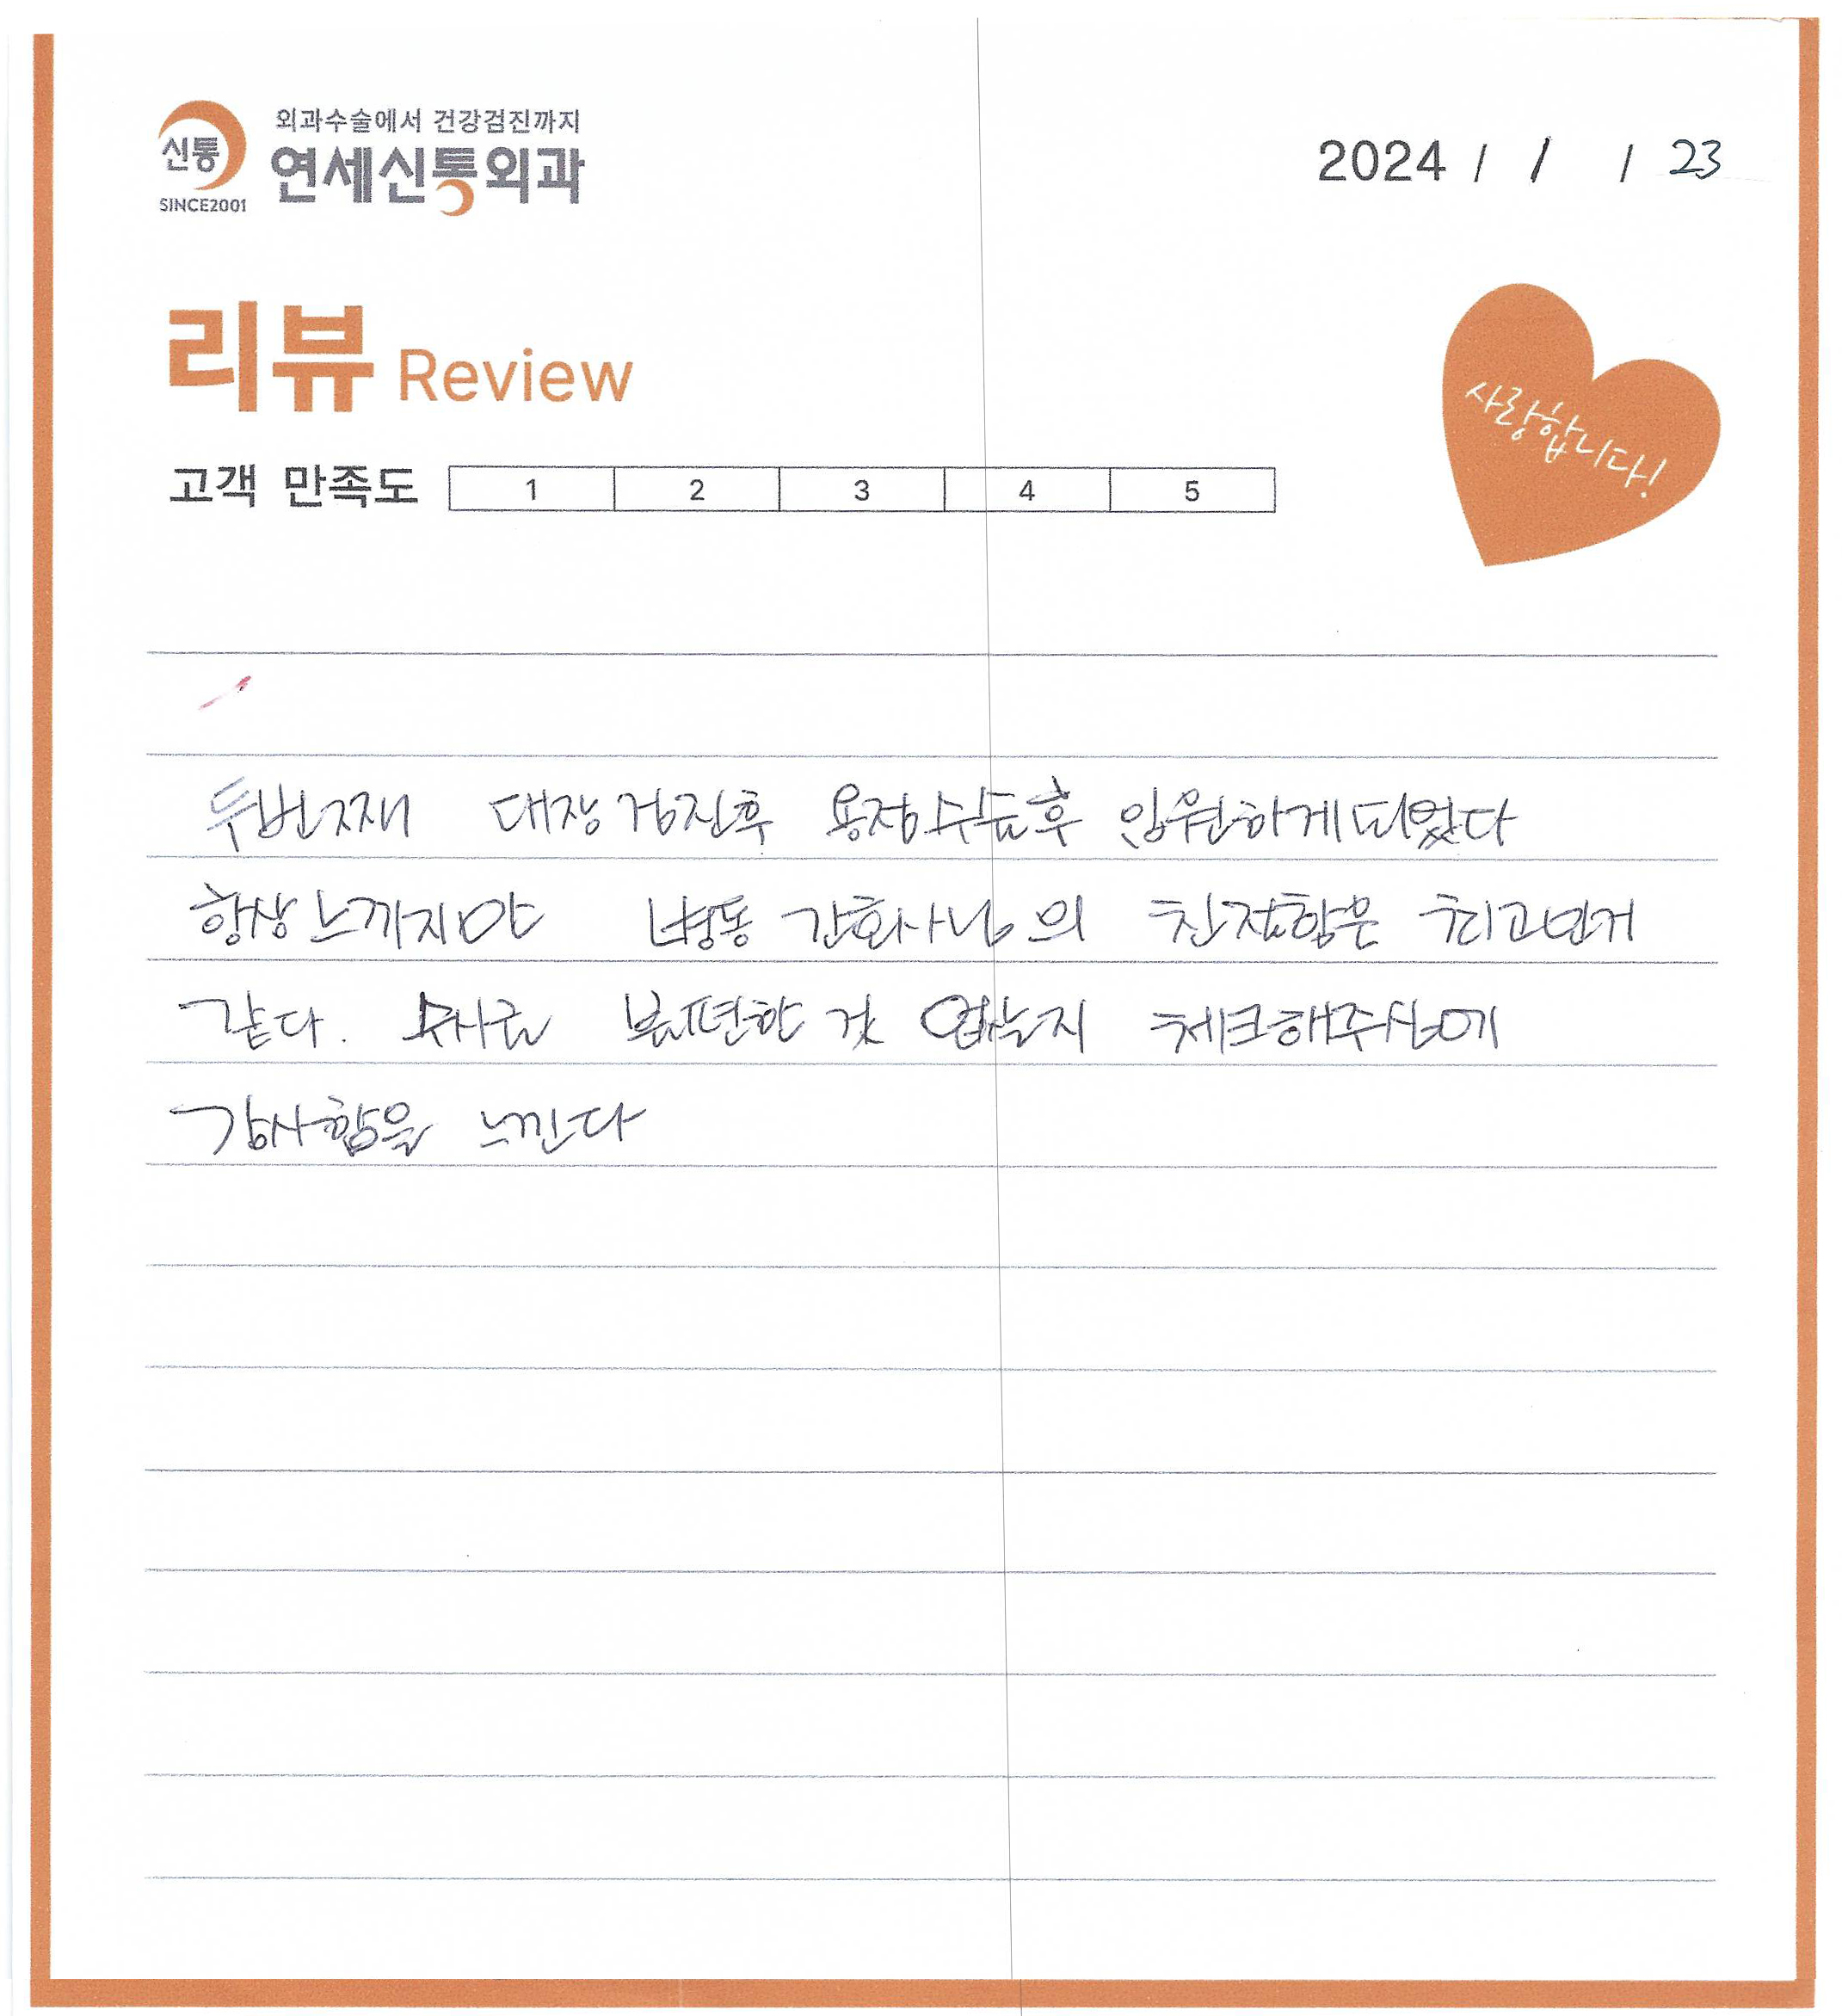 신통
SINCE2001
외과수술에서 건강검진까지
연세신통외과
2024 / 1 / 23
리뷰 Review
사랑합니다!
고객 만족도 1 2 3 4 5
두번째 대장검진후 용정수술후 입원하게되었다
항상느끼지만 병동 간호사님의 친절함은 최고인거
같다. 수시로 불편한 것 없는지 체크해주심에
감사함을 느낀다